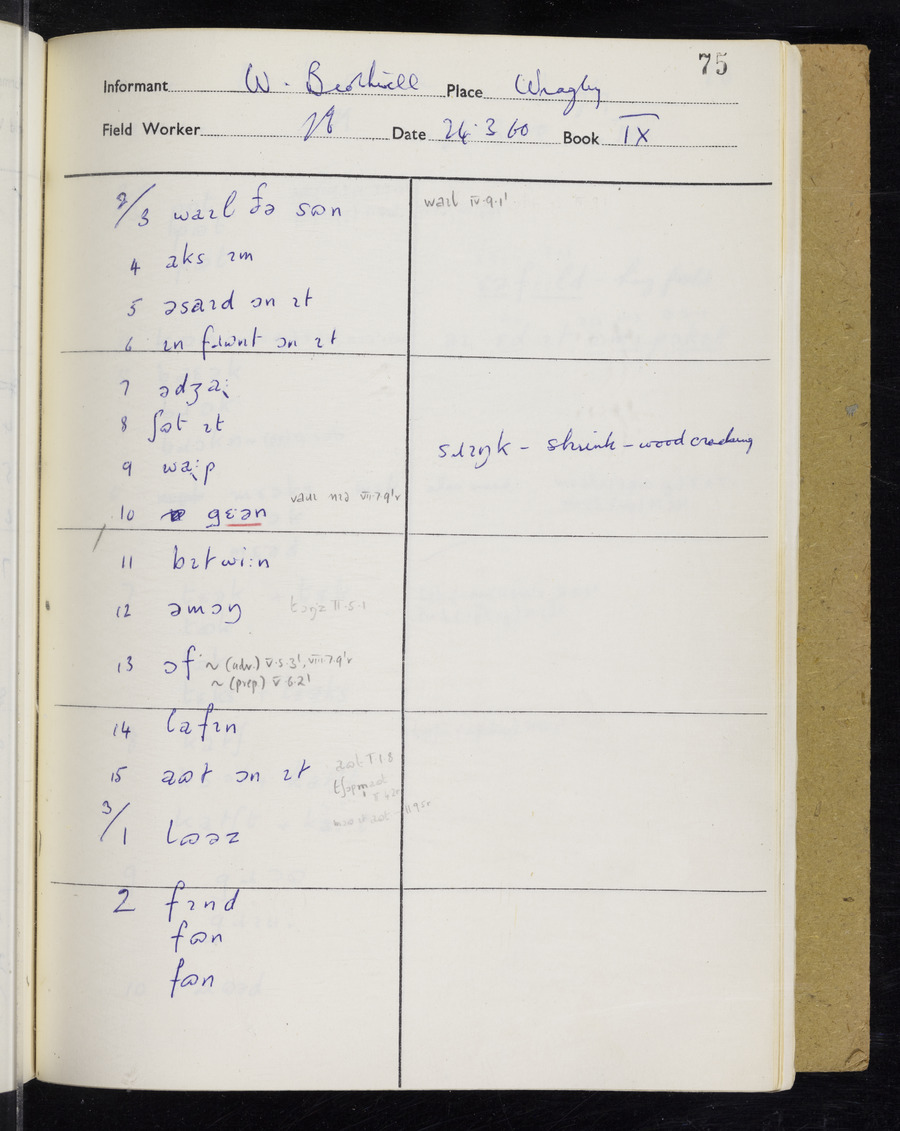 75
Informant W. Brothwell Place Wragby
Field Worker Date 24.3.60 Book IX
2/3 waɪl ðə sɷn
4 aks ɪm
5 əsaɪd ɔn ɪt
6 ɪn fɹɷnt ɔn ɪt
7 ədʒaːɪ
8 ʃɷt ɪt
9 waːɪp
10 gɛən
11 bɪtwiːn
12 əmɔŋ
13 ɔf ~ (adv.) V.5.3', VIII.7.9'r
~ (prep) V.6.2'
14 lafɪn
15 aɷt ɔn ɪt
3/1 lɷəz
2 fɪnd
fɷn
fɷn
waɪl IV.9.1'
sɹɪŋk – shrink – wood cracking